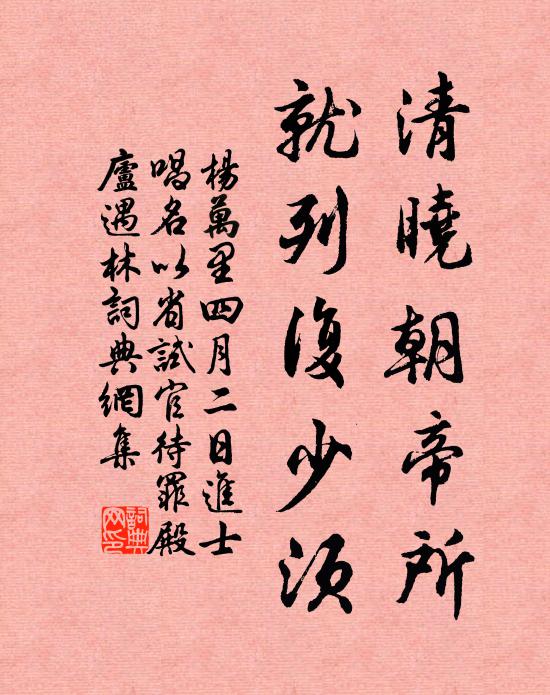 清曉朝帝所
就列復少須
楊萬里四月二日進士
唱名以省試官待罪殿
廬遇林詞典網集
詞典網印